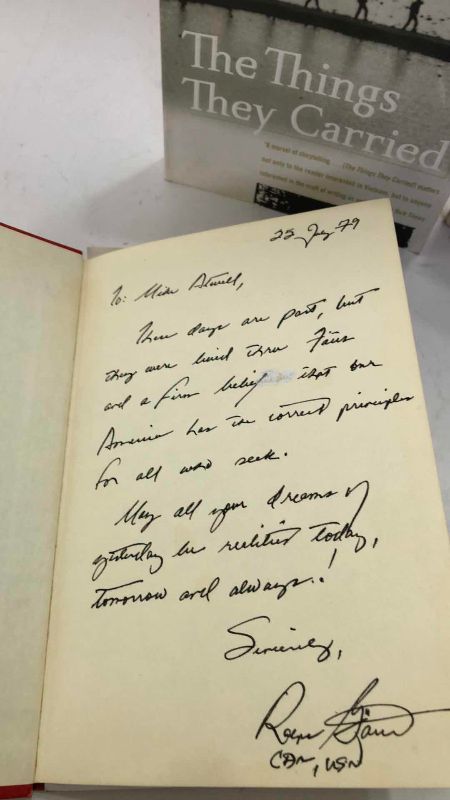 The Things
They Carried
"A marvel of storytelling.... [The Things They Carried] matters
not only to the reader interested in Vietnam, but to anyone
interested in the craft of writing as
79
To: Mike Atwell,
These days are past, but
they were lived thru Faith
and a firm belief that our
America has the correct principles
for all who seek.
May all your dreams of
yesterday be realities today,
tomorrow and always..!
Sincerely,
CDR, USN